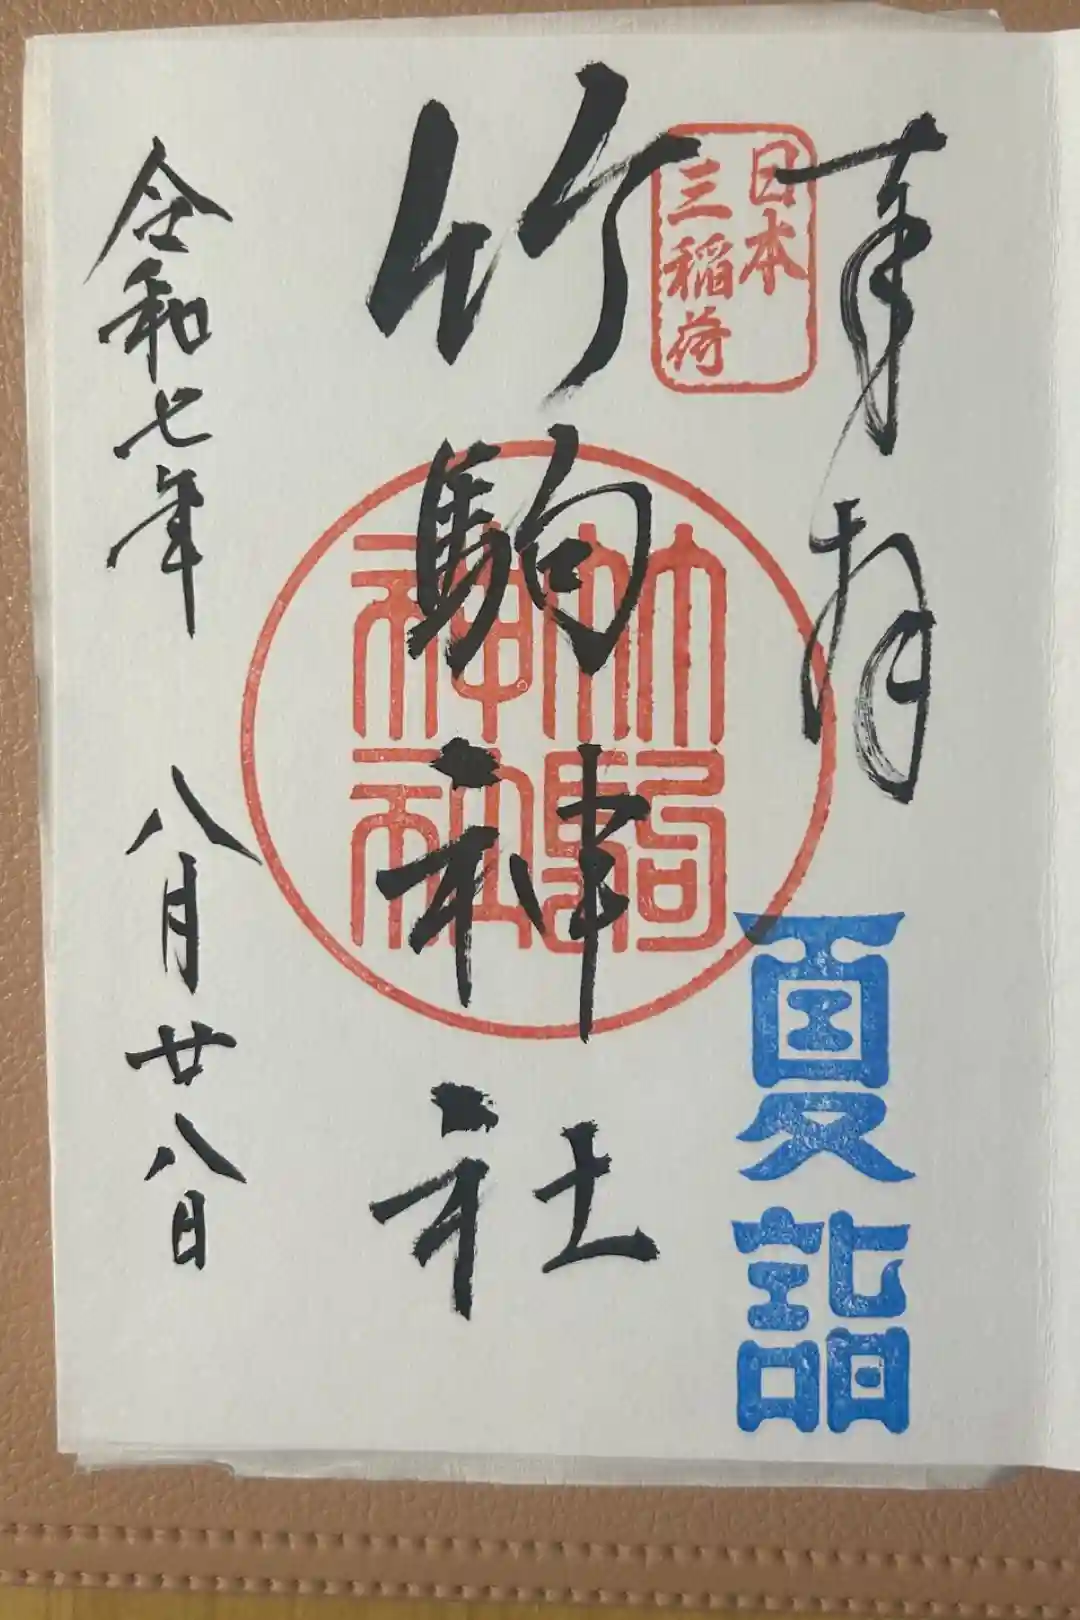 奉拝
日本
三稲荷
夏詣
竹駒神社
竹駒
神社
令和七年 八月廿八日